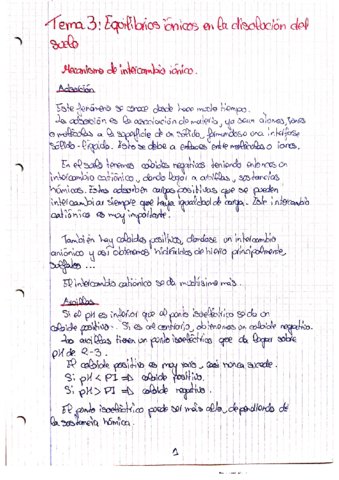 Tema 3: Equilibrios iónicos en la disolución del
suelo
Mecanismo de intercambio iónico.
Adsorción
Este fenómeno se conoce desde hace mucho tiempo.
La adsorción es la asociación de materia, ya sean átomos, iones
o moléculas a la superficie de un sólido, formándose una interfase
sólido-líquido. Esto se debe a enlaces entre moléculas o iones.
En el suelo tenemos coloides negativos teniendo entonces un
intercambio catiónico, dando lugar a arcillas, sustancias
húmicas. Estos adsorben cargas positivas que se pueden
intercambiar siempre que haya igualdad de carga. Este intercambio
catiónico es muy importante.
También hay coloides positivos, dándose un intercambio
aniónico y así obtenemos hidróxidos de hierro principalmente,
sulfatos ...
El intercambio catiónico se da muchísimo más.
Arcillas
Si el pH es inferior que al punto isoeléctrico se da un
coloide positivo. Si es al contrario, obtenemos un coloide negativo.
Las arcillas tienen un punto isoeléctrico que da lugar sobre
pH de 2-3.
El coloide positivo es muy raro, casi nunca sucede.
Si pH < PI ⇒ coloide positivo.
Si pH > PI ⇒ coloide negativo.
El punto isoeléctrico puede ser más alto, dependiendo de
la sustancia húmica.
1